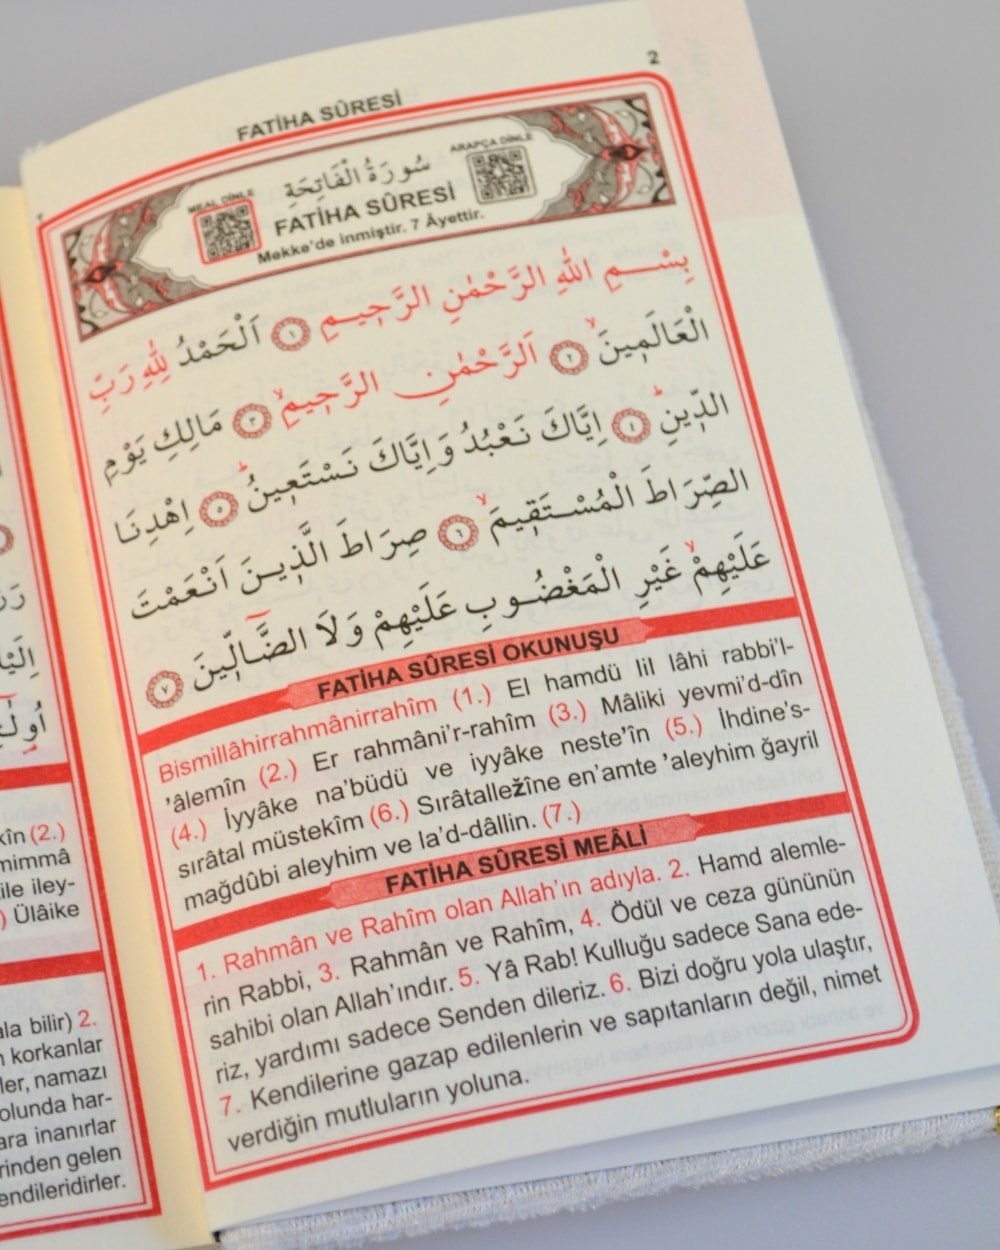 2
FATİHA SÛRESİ
MEAL DİNLE
ARAPÇA DİNLE
سُورَةُ الْفَاتِحَةِ
FATİHA SÛRESİ
Mekke’de inmiştir. 7 Âyettir.
بِسْمِ اللّٰهِ الرَّحْمٰنِ الرَّحٖيمِ ﴿١﴾ اَلْحَمْدُ لِلّٰهِ رَبِّ
الْعَالَمٖينَۙ ﴿٢﴾ اَلرَّحْمٰنِ الرَّحٖيمِۙ ﴿٣﴾ مَالِكِ يَوْمِ
الدّٖينِؕ ﴿٤﴾ اِيَّاكَ نَعْبُدُ وَاِيَّاكَ نَسْتَعٖينُؕ ﴿٥﴾ اِهْدِنَا
الصِّرَاطَ الْمُسْتَقٖيمَۙ ﴿٦﴾ صِرَاطَ الَّذٖينَ اَنْعَمْتَ
عَلَيْهِمْۙ غَيْرِ الْمَغْضُوبِ عَلَيْهِمْ وَلَا الضَّٓالّٖينَ ﴿٧﴾
FATİHA SÛRESİ OKUNUŞU
Bismillâhirrahmânirrahîm (1.) El hamdü lil lâhi rabbi’l-
’âlemîn (2.) Er rahmâni’r-rahîm (3.) Mâliki yevmi’d-dîn
(4.) İyyâke na’büdü ve iyyâke neste’în (5.) İhdine’s-
sırâtal müstekîm (6.) Sırâtalležîne en’amte ’aleyhim ğayril
mağdûbi aleyhim ve la’d-dâllin. (7.)
FATİHA SÛRESİ MEÂLİ
1. Rahmân ve Rahîm olan Allah’ın adıyla. 2. Hamd alemle-
rin Rabbi, 3. Rahmân ve Rahîm, 4. Ödül ve ceza gününün
sahibi olan Allah’ındır. 5. Yâ Rab! Kulluğu sadece Sana ede-
riz, yardımı sadece Senden dileriz. 6. Bizi doğru yola ulaştır,
7. Kendilerine gazap edilenlerin ve sapıtanların değil, nimet
verdiğin mutluların yoluna.
kîn (2.)
mimmâ
ile iley-
) Ülâike
ala bilir) 2.
korkanlar
ler, namazı
olunda har-
ara inanırlar
rinden gelen
endileridirler.